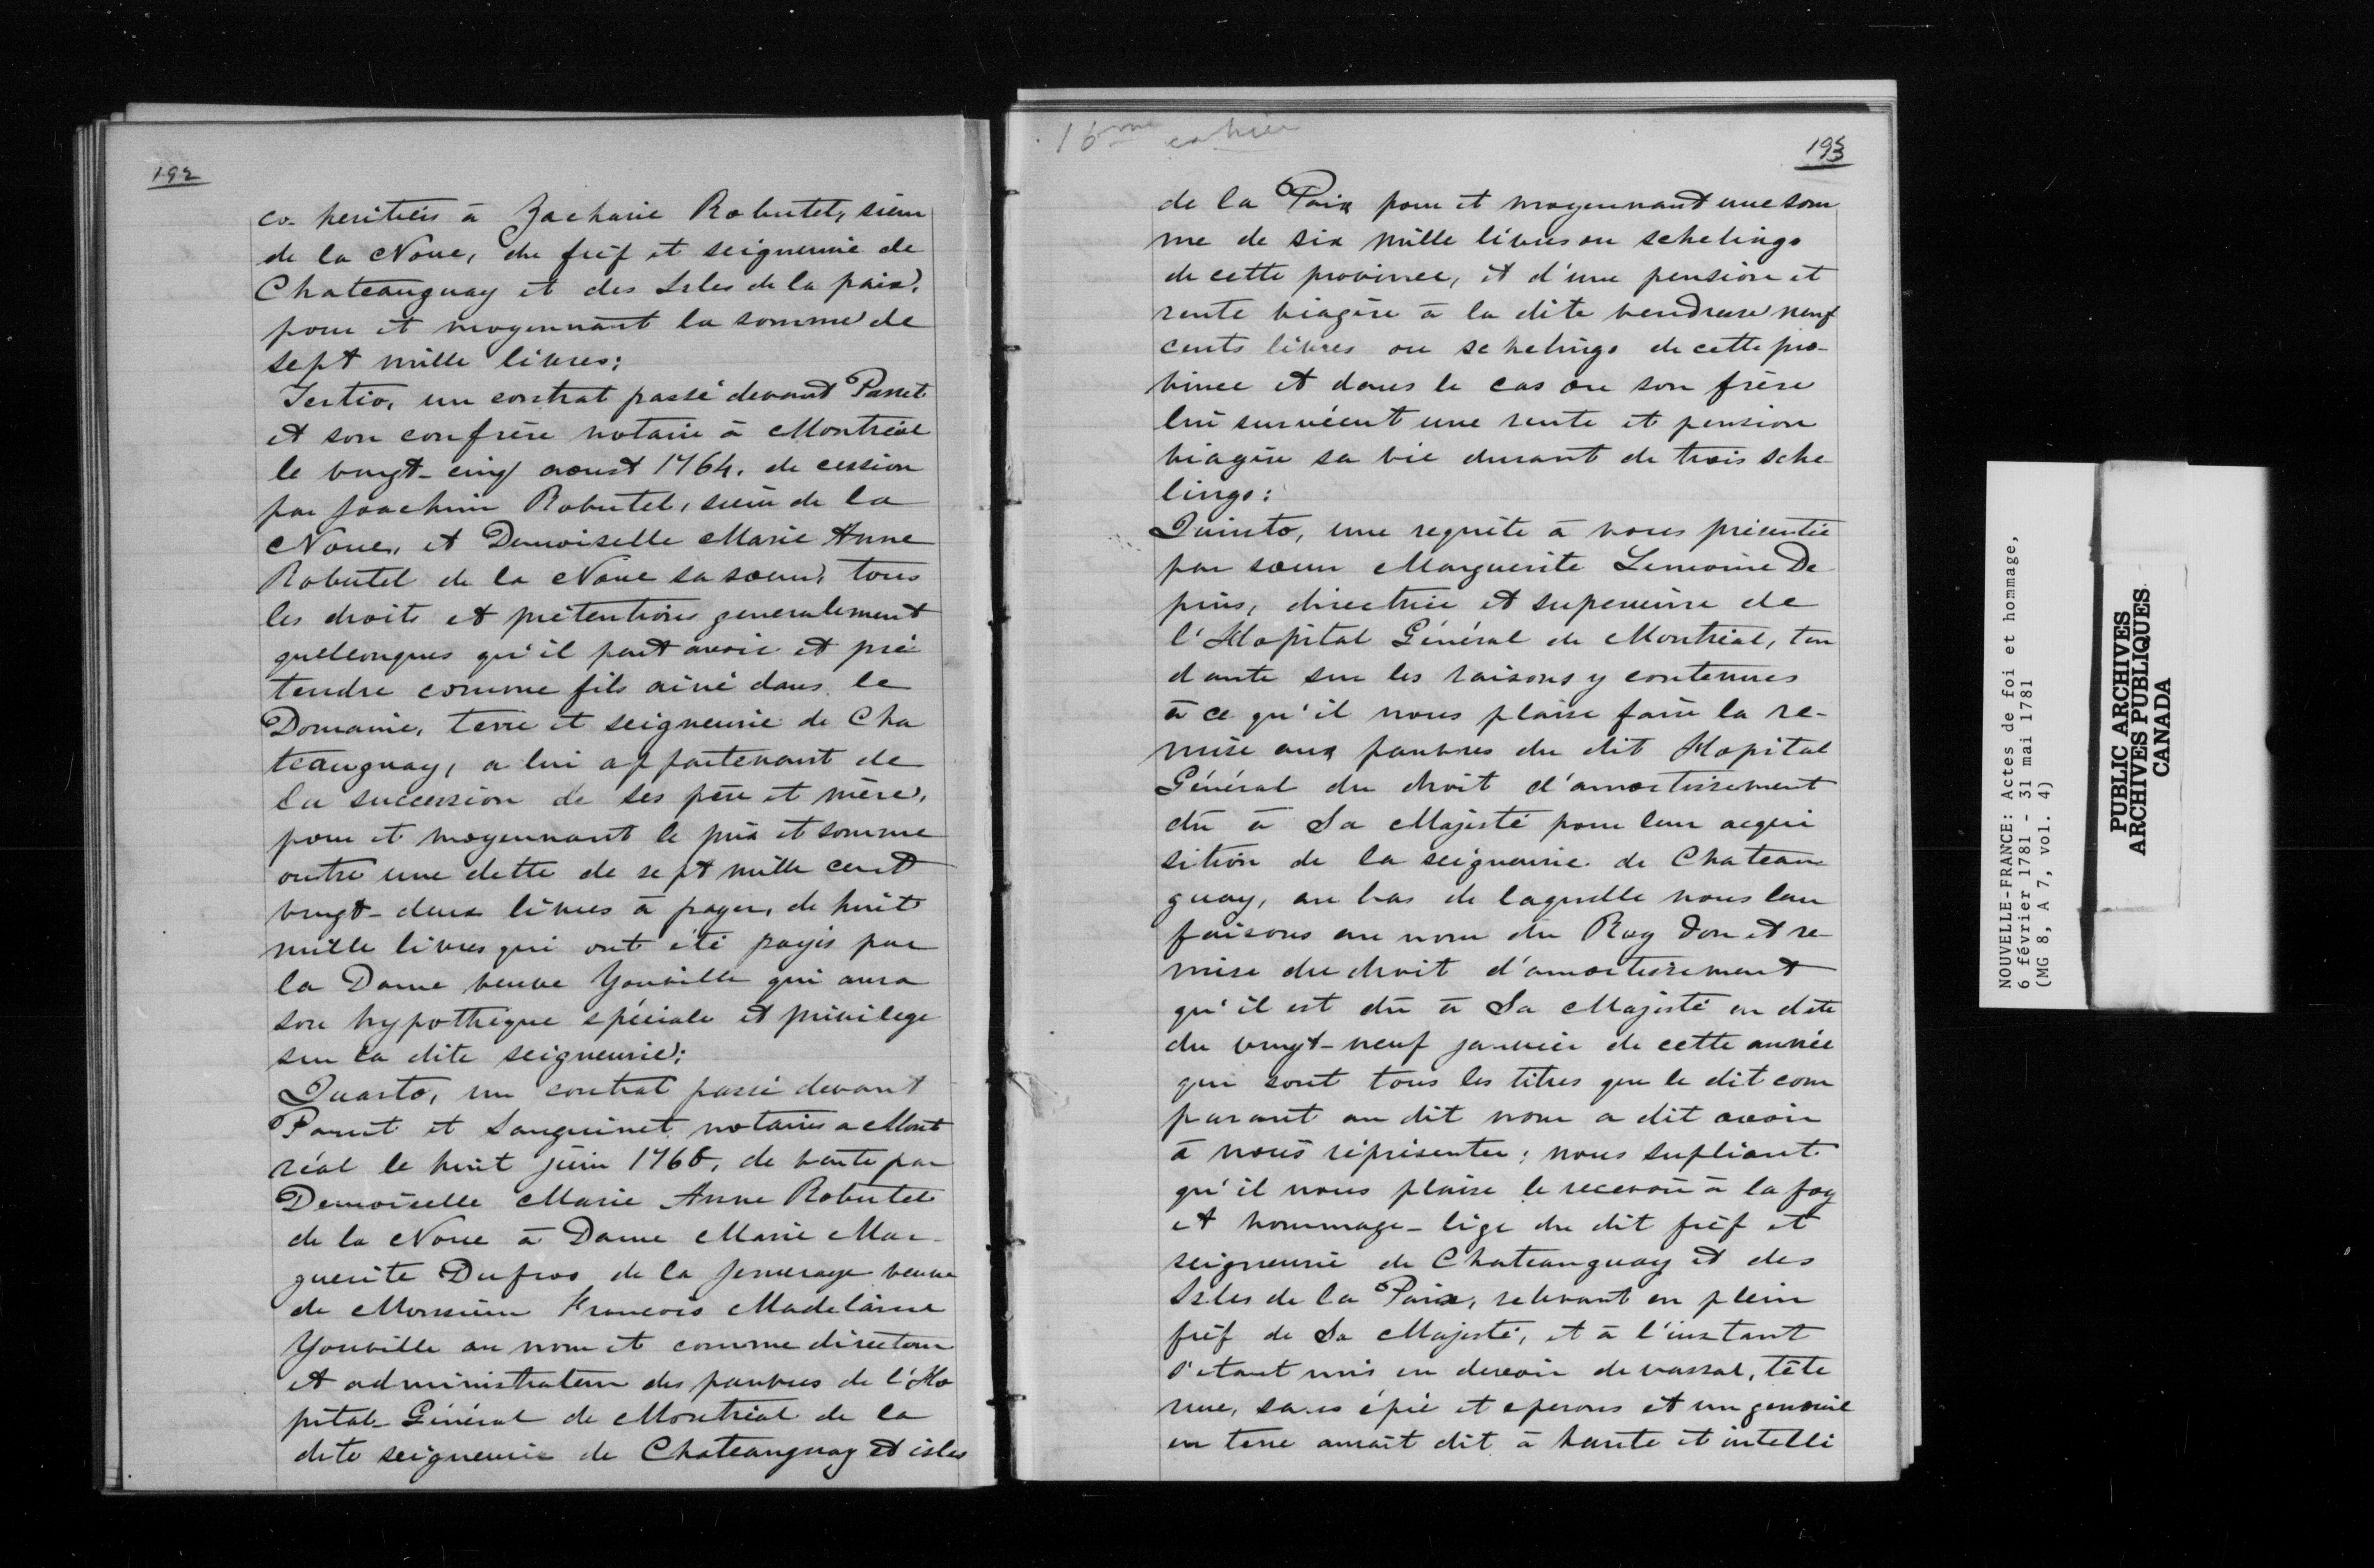 192
co-heritiers à Zacharie Robutel, sieur
de la Noue, du fief et seigneurie de
Chateauguay et des Isles de la paix,
pour et moyennant la somme de
sept mille livres;
Tertio, un contrat passé devant Panet
et son confrère notaire à Montréal
le vingt-cinq aoust 1764, de cession
par Joachim Robutel, sieur de la
Noue, et Demoiselle Marie Anne
Robutel de la Noue sa soeur, tous
les droits et prétentions generalement
quelconques qu'il peut avoir et pré
tendre comme fils ainé dans le
Domaine, terre et seigneurie de Cha
teauguay, a lui appartenant de
la succession de ses père et mère,
pour et moyennant le prix et somme
outre une dette de sept mille cent
vingt-deux livres à payer, de huit
mille livres qui ont été payés par
la Dame veuve Youville qui aura
son hypothèque spéciale et privilege
sur la dite seigneurie;
Quarto, un contrat passé devant
Panet et Sanguinet notaires a Mont
réal le huit juin 1765, de vente par
Demoiselle Marie Anne Robutel
de la Noue à Dame Marie Mar-
guerite Dufros de la Jemeraye veuve
de Monsieur Francois Madelaine
Youville au nom et comme directeur
et administrateur des pauvres de l'Ho
pital Général de Montréal de la
dite seigneurie de Chateauguay et isles
16me cahier
193
de la Paix pour et moyennant une som
me de six mille livres ou schelings
de cette province, et d'une pension et
rente viagère à la dite vendeuse neuf
cents livres ou schelings de cette pro-
vince et dans le cas ou son frère
lui survécut une rente et pension
viagère sa vie durant de trois sche-
lings;
Quinto, une requête à nous présentée
par soeur Marguerite Lemoine De
pins, directrice et superieure de
l'Hopital Général de Montréal, ten
dante sur les raisons y contenues
à ce qu'il nous plaise faire la re-
mise aux pauvres du dit Hopital
Général du droit d'amortissement
dû à Sa Majesté pour leur acqui
sition de la seigneurie de Chateau
guay, au bas de laquelle nous leur
faisons au nom du Roy don et re-
mise du droit d'amortissement
qu'il est dû à Sa Majesté en date
du vingt-neuf janvier de cette année
qui sont tous les titres que le dit com
parant au dit nom a dit avoir
à nous réprésenter; nous supliant
qu'il nous plaise le recevoir à la foy
et hommage-lige du dit fièf et
seigneurie de Chateauguay et des
Isles de la Paix, relevant en plein
fièf de Sa Majesté, et à l'instant
s'etant mis en devoir de vassal, tête
nue, sans épée et eperons et un genouil
en terre aurait dit à haute et intelli
NOUVELLE-FRANCE: Actes de foi et hommage,
6 février 1781 - 31 mai 1781
(MG 8, A 7, vol. 4)
PUBLIC ARCHIVES
ARCHIVES PUBLIQUES
CANADA